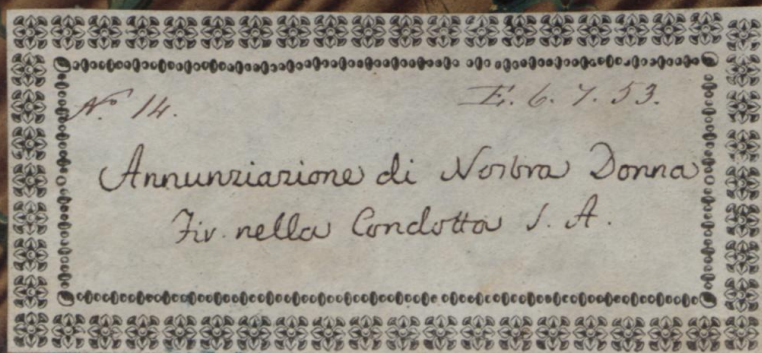 No. 14. E. 6. 7. 53.
Annunziazione di Nostra Donna
Fir. nella Condotta S. A.